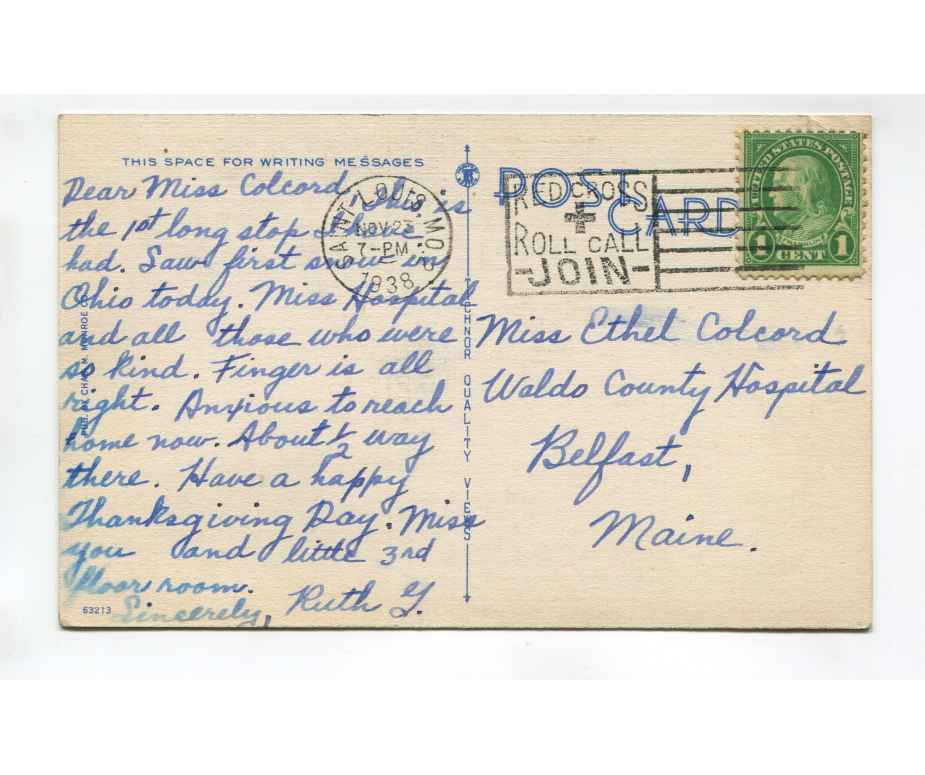 THIS SPACE FOR WRITING MESSAGES
Dear Miss Colcord - This is
the 1st long stop I have
had. Saw first snow in
Ohio today. Miss Hospital
and all those who were
so kind. Finger is all
right. Anxious to reach
home now. About 1/2 way
there. Have a happy
Thanksgiving Day. Miss
you and little 3rd
floor room.
Sincerely, Ruth G.
63213
MONROE
TECHNOR QUALITY VIEWS
SAINT LOUIS, MO.
NOV 23
7-PM
1938
POST CARD
RED CROSS
+
ROLL CALL
-JOIN-
UNITED STATES POSTAGE
1 CENT 1
Miss Ethel Colcord
Waldo County Hospital
Belfast,
Maine.